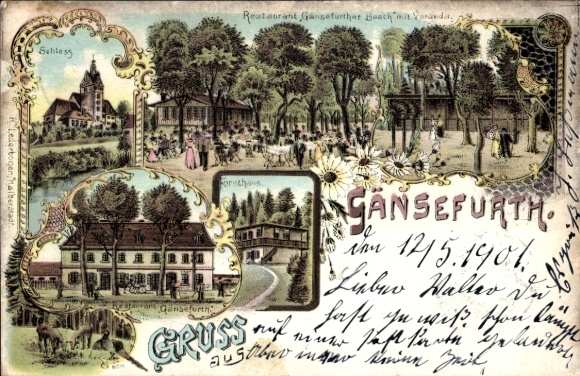 Restaurant „Gänsefurther Busch“ mit Veranda.
Schloss
Forsthaus.
Restaurant „Gänsefurth“
GÄNSEFURTH.
GRUSS
aus
den 12/5. 1901.
Lieber Walter Du
hast gewiß schon längst
auf eine Postkarte gelauert
Aber immer keine Zeit